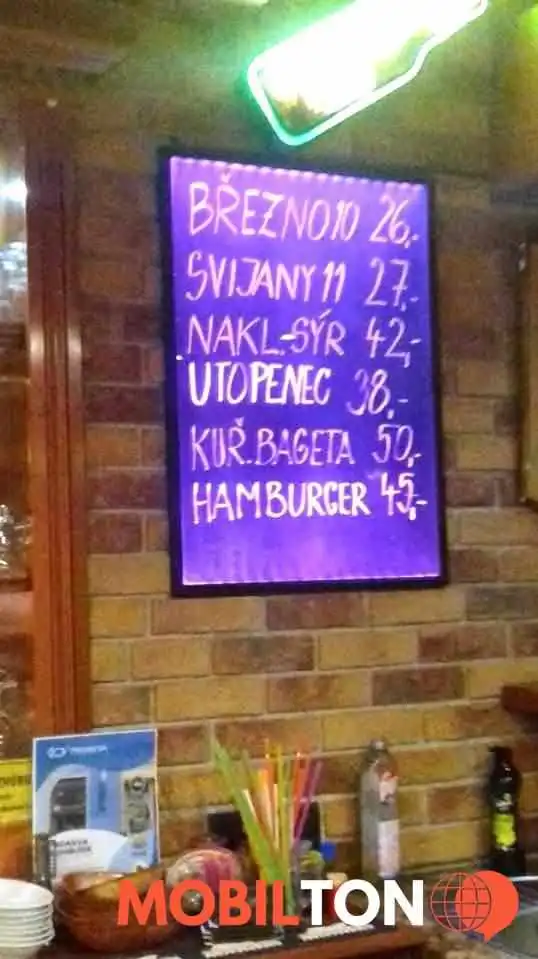 BŘEZNO10 26,-
SVIJANY 11 27,-
NAKL.SÝR 42,-
UTOPENEC 38,-
KUŘ.BAGETA 50,-
HAMBURGER 45,-
MOBILTON